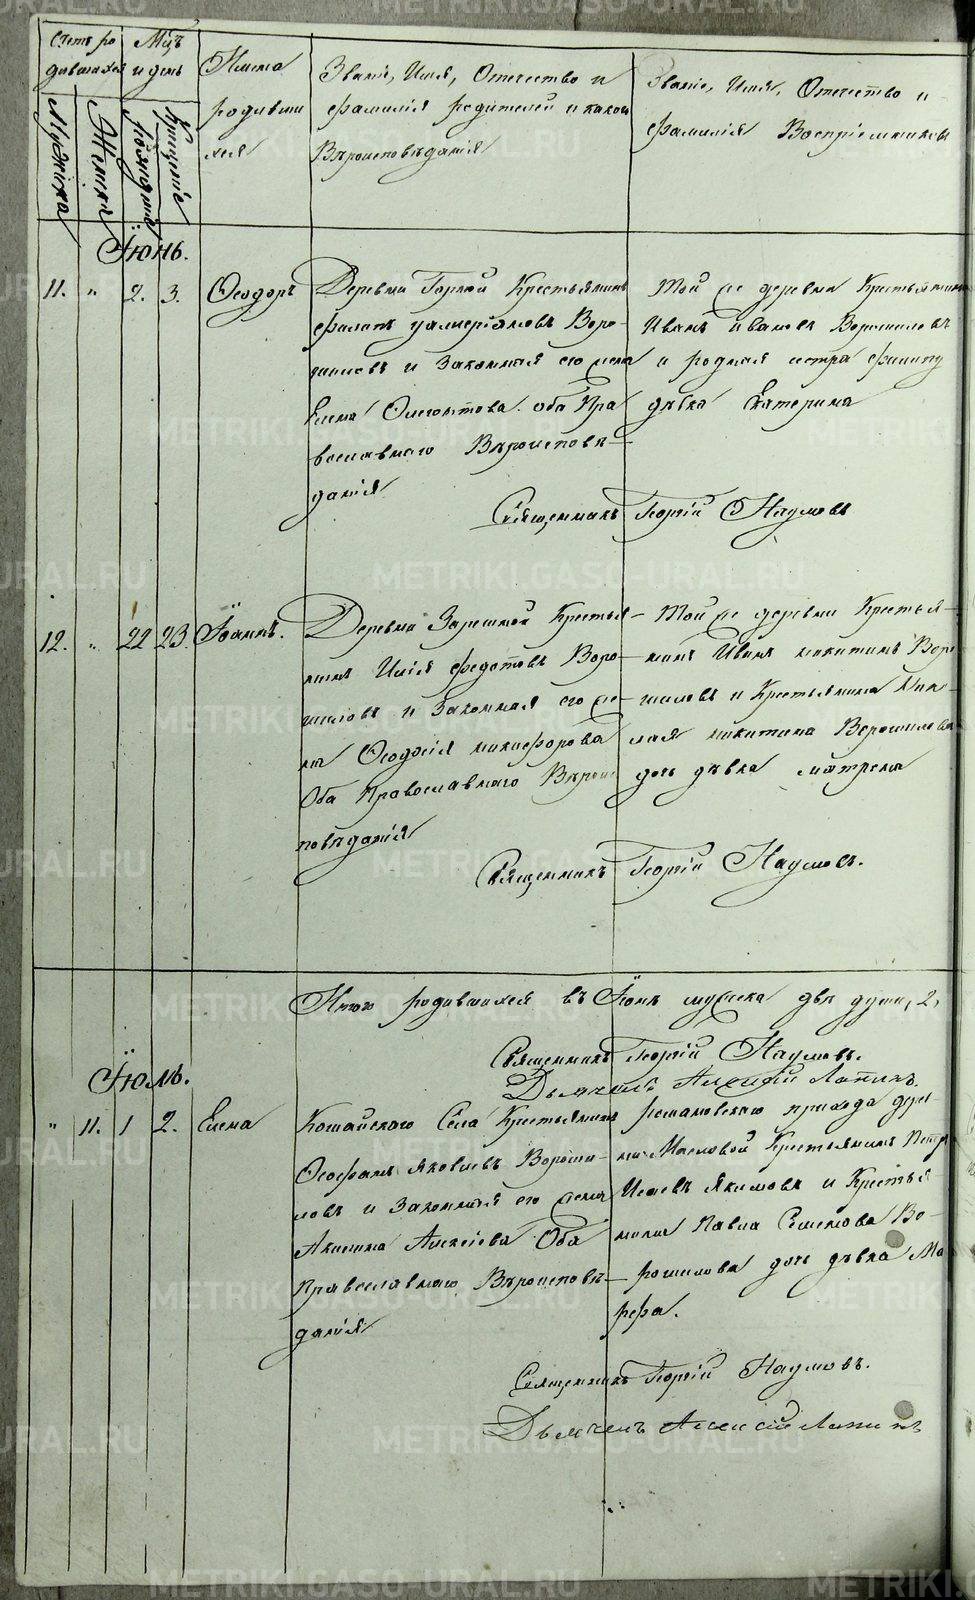 Счетъ ро
дившихся
Мцъ
и день
Имена
родивши
хся
Званіе, Имя, Отечество и
фамилія родителей и какой
Вѣроисповѣданія
Званіе, Имя, Отечество и
фамилія Воспріемниковъ
Мужска
Женска
Рожденіе
Крещеніе
Іюнь.
11. " 2. 3. Ѳеодоръ
Деревни Горной Крестьянинъ
филатъ Воро-
шиловъ и Законная его жена
Елена оба Пра
вославнаго Вѣроисповѣ-
данія
Той же деревни Крестьянинъ
Иванъ ивановъ Ворошиловъ
и родная сестра филиппу
дѣвка Екатерина
Священникъ Георгій Наумовъ
12. " 22 23 Іоаннъ.
Деревни Зарешной Крестья-
нинъ Илія федотовъ Воро-
шиловъ и Законная его же-
на Ѳеодосія никифорова
Оба Православнаго Вѣроис
повѣданія
Той же деревни Крестья-
нинъ Иванъ никитинъ Воро
шиловъ и Крестьянина
никитина Ворошилова
дочь дѣвка матрена
Священникъ Георгій Наумовъ.
Итого родившихся въ Іюнѣ мужска двѣ души, 2,
Священникъ Георгій Наумовъ.
Дьячекъ Алексій Лапинъ.
Іюль.
" 11. 1 2. Елена
Кошайскаго Села Крестьянинъ
Ѳеофанъ Яковлевъ Вороши-
ловъ и Законная его жена
Акилина Алексіева Оба
Православнаго Вѣроисповѣ-
данія
романовскаго прихода древ-
ни Масловой Крестьянинъ Петръ
Исаевъ Якимовъ и Крестья
нина Павла Семенова Во-
рошилова дочь дѣвка Ма
рфа.
Священникъ Георгій Наумовъ.
Дьячекъ Алексій Лапинъ
METRIKI.GASO-URAL.RU